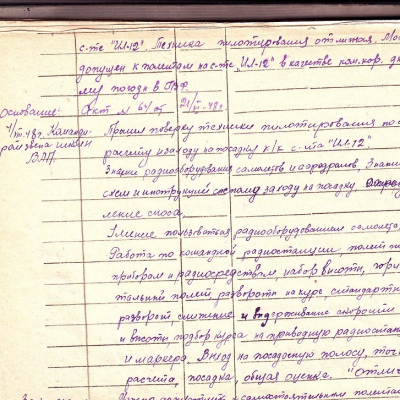 с-те "Ил-12". Техника пилотирования отличная. Мо
допущен к полетам на с-те "Ил-12" в качестве ком. кор. дн
Основание: Акт № 21/III-48г.
Принял поверку техники пилотирования по
расчету и заходу на посадку к/к с-та "Ил-12".
Знание радиооборудования самолетов и аэродромов, Знани
схем и инструкций
заходу на посадку.
ление сноса,
Умение пользоваться радиооборудованием самолета,
Работа по командной радиостанции, полет
приборам и радиосредствам набор высоты, гори
тальный полет, развороты на курс, стандартн
разворот снижение и выдерживание скорости
и высоты, подбор курса на приводную радиостан
и маркера. Выход на посадочную полосу, точ
расчета, посадка, общая оценка "Отлич
самостоятельным полетам